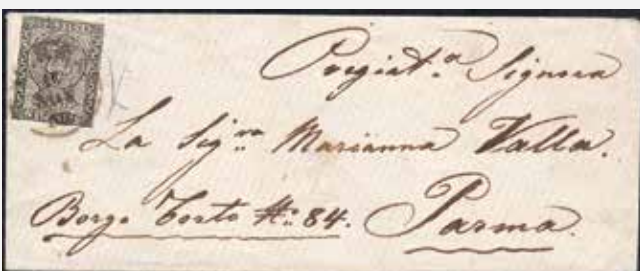 Pregiat.a Signora
La Sig.ra Marianna Valla.
Borgo Torto N.o 84. Parma.